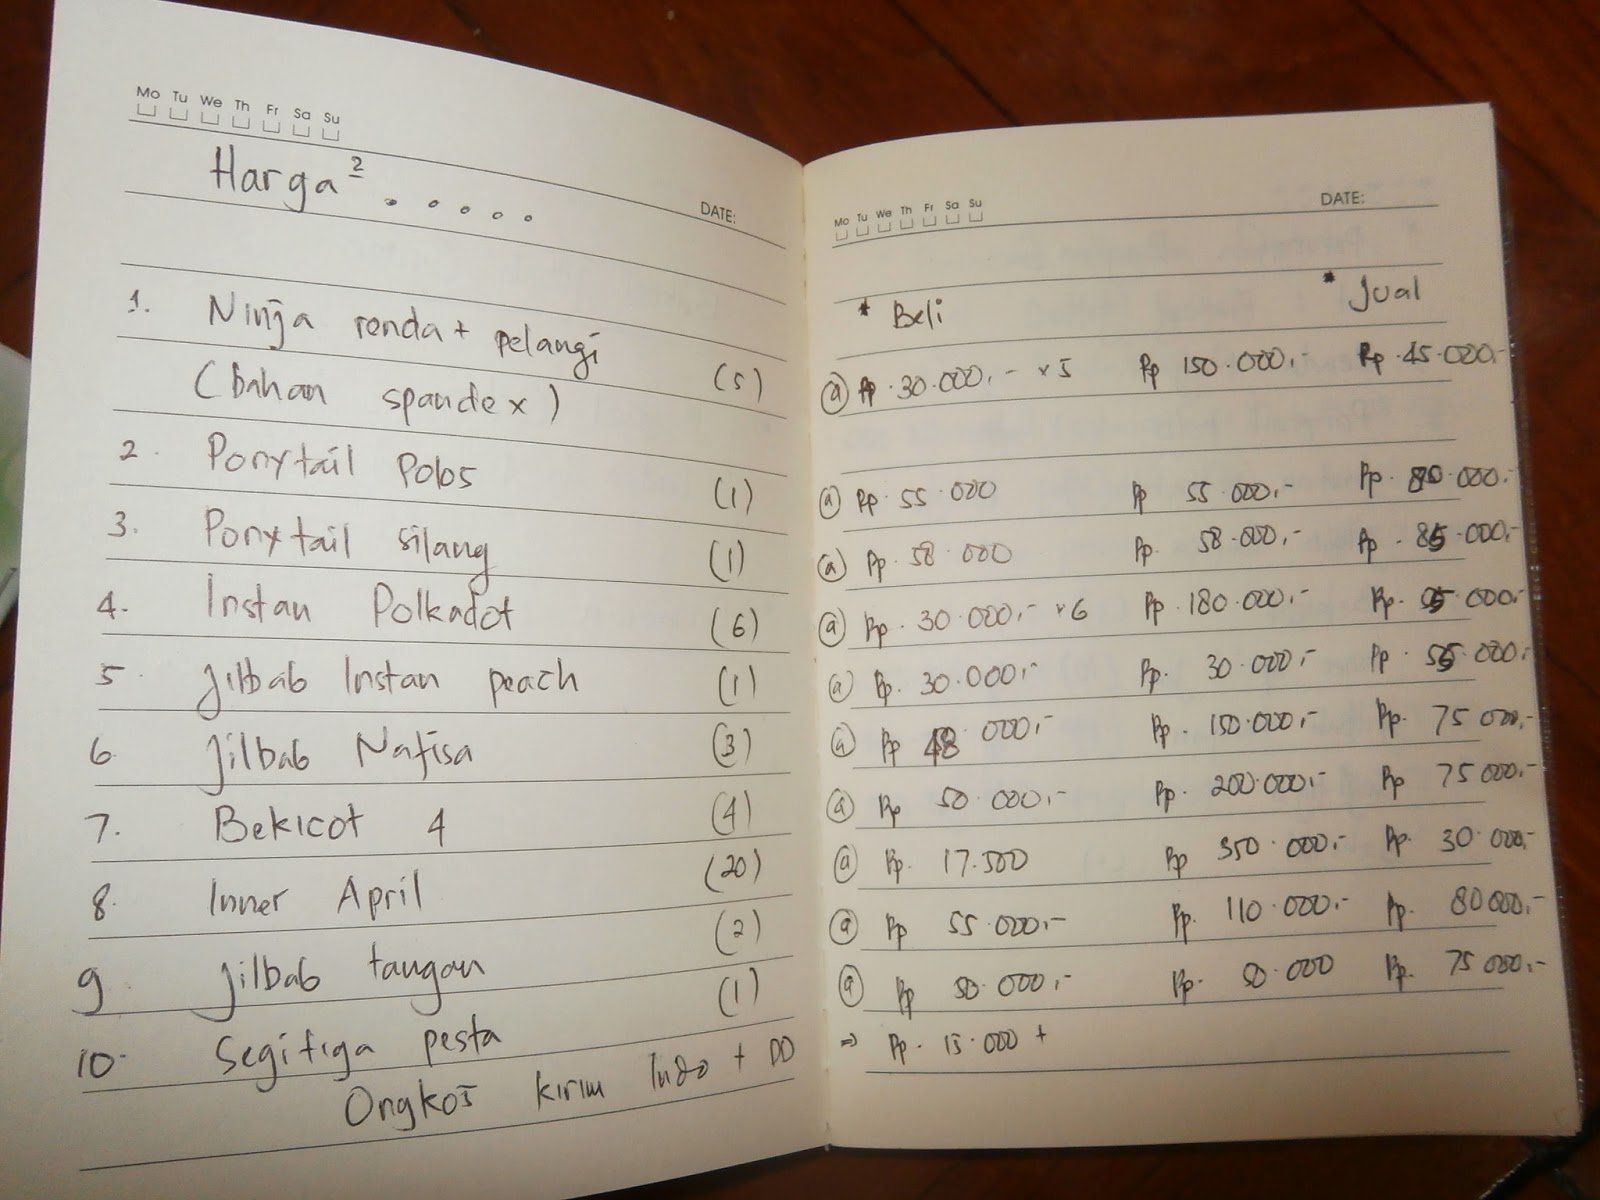 Mo Tu We Th Fr Sa Su
Harga² . . . . .
DATE:
1. Ninja renda + pelangi
(bahan spandex) (5)
2. Ponytail Polos (1)
3. Ponytail silang (1)
4. Instan Polkadot (6)
5. Jilbab Instan peach (1)
6. Jilbab Nafisa (3)
7. Bekicot 4 (4)
8. Inner April (20)
9. Jilbab tangan (2)
10. Segitiga pesta (1)
Ongkos kirim Indo + DD
Mo Tu We Th Fr Sa Su
DATE:
* Beli * Jual
@ Rp. 30.000,- x 5 Rp 150.000,- Rp. 45.000,-
@ Rp. 55.000 Rp 55.000,- Rp. 80.000,-
@ Rp. 58.000 Rp. 58.000,- Rp. 85.000,-
@ Rp. 30.000,- x 6 Rp. 180.000,- Rp. 000,-
@ Rp. 30.000,- Rp. 30.000,- Rp. 000,-
@ Rp 48.000,- Rp. 150.000,- Rp. 75 000,-
@ Rp 50.000,- Rp. 200.000,- Rp 75 000,-
@ Rp. 17.500 Rp 350.000,- Rp. 30.000,-
@ Rp 55.000,- Rp. 110.000,- Rp. 80 000,-
@ Rp 50.000,- Rp. 50.000 Rp. 75 000,-
⇒ Rp. 15.000 +